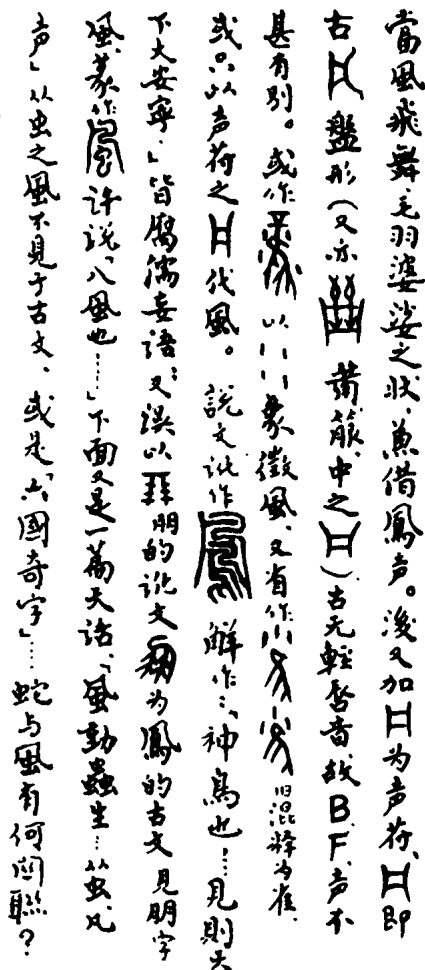 當風飛舞、毛羽婆娑之状、兼借鳳声。後又加 为声符、即
古 盤形(又亦 中之 )古无輕唇音、故B.F.声不
甚有别。或作 以 象徵風、又有作 旧混释为雀、
或只以声符之 代風。説文訛作 解作:「神鳥也…見則天
下大安寧、」皆腐儒妄語;又误以 朋的说文 为鳳的古文見朋字
風、篆作 许说、「八風也……」下面又是一篇天话、「風動蟲生…从虫、凡
声」从虫之風不見于古文、或是「六國奇字」……蛇与風有何関聯?